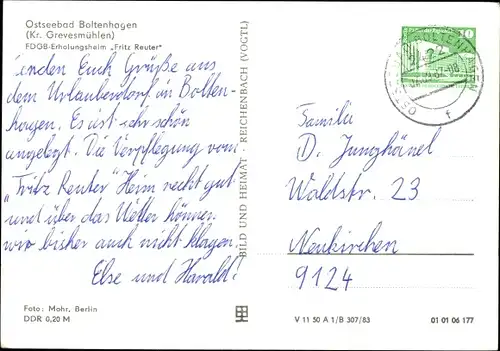 Ostseebad Boltenhagen
(Kr. Grevesmühlen)
FDGB-Erholungsheim „Fritz Reuter"
senden Euch Grüße aus
dem Urlauberdorf in Bolten-
hagen. Es ist sehr schön
angelegt. Die Verpflegung vom
„Fritz Reuter" Heim recht gut
und über das Wetter können
wir bisher auch nicht klagen.
Else und Harald!
Foto: Mohr, Berlin
DDR 0,20 M
BILD UND HEIMAT · REICHENBACH (VOGTL)
10
OSTSEEBAD BOLTENHAGEN
f
Familie
D. Junghänel
Waldstr. 23
Neukirchen
9124
V 11 50 A 1/B 307/83
01 01 06 177